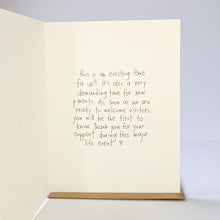 this is an exciting time
for us!! It's also a very
demanding time for new
parents. As soon as we are
ready to welcome visitors,
you will be the first to
know. Thank you for your
support during this major
life event. ♡